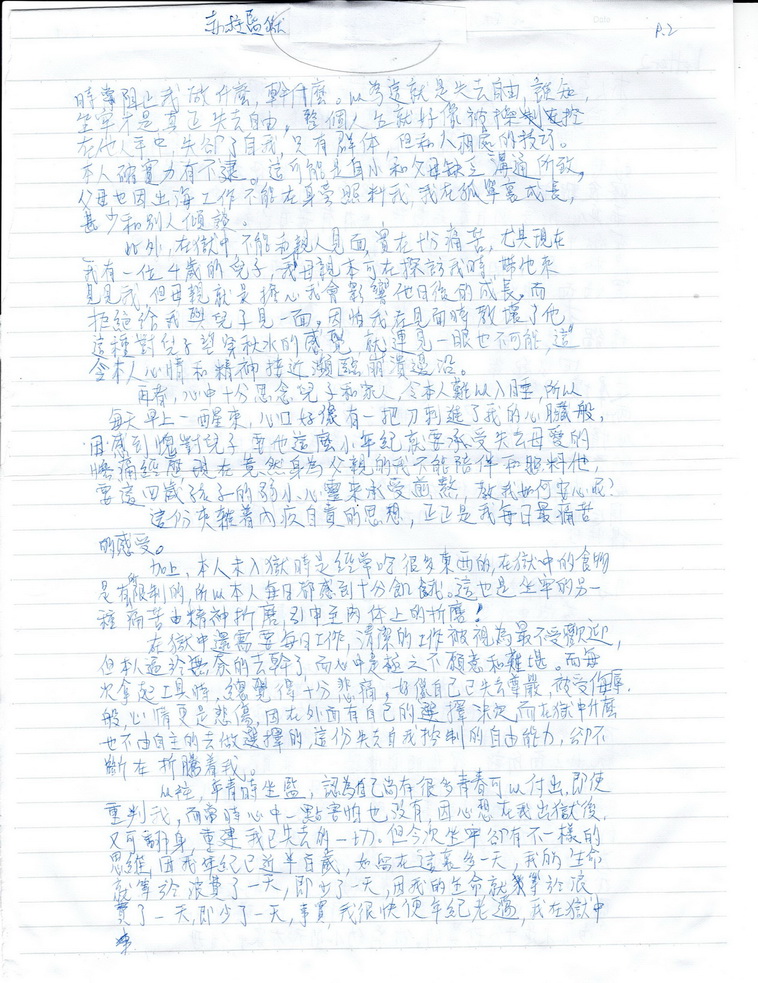 赤柱監獄
P.2
時常阻止我做什麼,幹什麼。以為這就是失去自由,誰知,
坐牢才是真正失去自由,整個人生就好像被操制在控
在他人手中,失卻了自我,只有群体,但和人相處的技巧。
本人確實力有不逮。這可能是自小和父母缺乏溝通所致,
父母也因出海工作不能在身旁照料我,我在孤單裏成長,
甚少和別人傾談。
此外,在獄中不能與親人見面,實在十分痛苦,尤其現在
我有一位4歲的兒子,我母親本可在探訪我時,帶他來
見見我,但母親就是擔心我會影響他日後的成長,而
拒絕給我與兒子見一面。因怕我在見面時教壞了他,
這種對兒子望穿秋水的感覺,就連見一眼也不可能,這
令本人心情和精神接近瀕臨崩潰邊沿。
再者,心中十分思念兒子和家人,令本人難以入睡,所以
每天早上一醒來,心口好像有一把刀刺進了我的心臟般,
因感到愧對兒子,要他這麼小年紀就要承受失去母愛的
慘痛經歷,現在竟然身為父親的我不能陪伴和照料他,
要這四歲孩子的弱小心靈來承受煎熬,教我如何安心呢?
這份夾雜着內疚自責的思想,正正是我每日最痛苦
的感受。
加上,本人未入獄時是經常吃很多東西的,在獄中的食物
是有限制的,所以本人每日都感到十分飢餓。這也是坐牢的另一
種痛苦由精神折磨,引申至肉体上的折磨!
在獄中還需要每日工作,清潔的工作被視為最不受歡迎,
但本人逼於無奈的去幹了,而心中是極之不願意和難堪。而每
次拿起工具時,總覺得十分悲痛,好像自己已失去尊嚴,被受侮辱
般,心情更是悲傷,因在外面有自己的選擇決定,而在獄中什麼
也不由自主的去做選擇的,這份失去自我控制的自由能力,卻不
斷在折騰着我。
以往,年青時坐監,認為自己尚有很多青春可以付出,即使
重判我,而當時心中一點害怕也沒有,因心想在我出獄後,
又可翻身,重建我已失去的一切。但今次坐牢卻有不一樣的
思維,因我年紀已近半百歲,如留在這裏多一天,我的生命
就等於浪費了一天,即少了一天,因我的生命就等於浪
費了一天,即少了一天,事實,我很快便年紀老邁,我在獄中